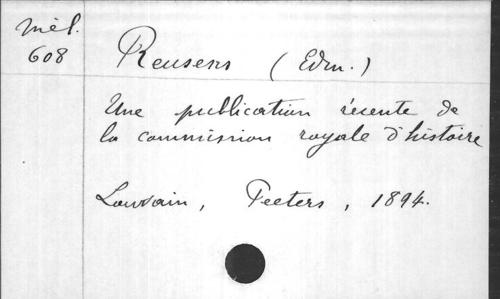 Mél.
608
Reusens (Edm.)
Une publication récente de
la commission royale d'histoire
Louvain, Peeters, 1894.